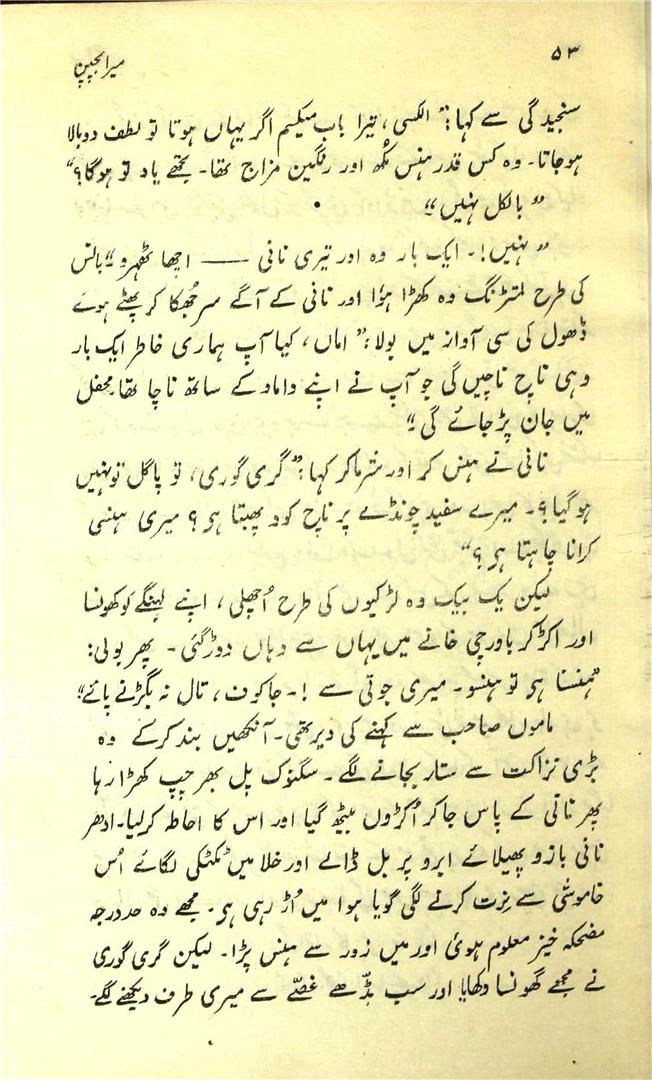 ۵۳
میرا بچپن
سنجیدگی سے کہا: "الکسی، تیرا باپ میکسم اگر یہاں ہوتا تو لطف دوبالا
ہوجاتا۔ وہ کس قدر ہنس مُکھ اور رنگین مزاج تھا۔ تجھے یاد تو ہوگا؟"
"بالکل نہیں"
"نہیں!۔ ایک بار وہ اور تیری نانی —— اچھا ٹھہرو" بانس
کی طرح لمتڑنگ وہ کھڑا ہؤا اور نانی کے آگے سر جُھکا کر پھٹے ہوئے
ڈھول کی سی آواز میں بولا: "اماں، کیا آپ ہماری خاطر ایک بار
وہی ناچ ناچیں گی جو آپ نے اپنے داماد کے ساتھ ناچا تھا۔ محفل
میں جان پڑجائے گی"
نانی نے ہنس کر اور شرماکر کہا: "گری گوری، تو پاگل تو نہیں
ہوگیا؟۔ میرے سفید چونڈے پر ناچ کود پھبتا ہی؟ میری ہنسی
کرانا چاہتا ہی؟"
لیکن یک بیک وہ لڑکیوں کی طرح اُچھلی، اپنے لہنگے کو کھونسا
اور اکڑکر باورچی خانے میں یہاں سے وہاں دوڑگئی۔ پھر بولی:
"ہنسنا ہی تو ہنسو۔ میری جوتی سے!۔ جاکوف، تال نہ بگڑنے پائے"
ماموں صاحب سے کہنے کی دیر تھی۔ آنکھیں بند کرکے وہ
بڑی نزاکت سے ستار بجانے لگے۔ سگنوک پل بھر چپ کھڑا رہا
پھر نانی کے پاس جاکر اُکڑوں بیٹھ گیا اور اس کا احاطہ کرلیا۔ ادھر
نانی بازو پھیلائے ابرو پر بل ڈالے اور خلا میں ٹکٹکی لگائے اُس
خاموشی سے نِرت کرنے لگی گویا ہوا میں اُڑ رہی ہی۔ مجھے وہ حد درجہ
مضحکہ خیز معلوم ہوئی اور میں زور سے ہنس پڑا۔ لیکن گری گوری
نے مجھے گھونسا دکھایا اور سب بڈّھے غصّے سے میری طرف دیکھنے لگے۔